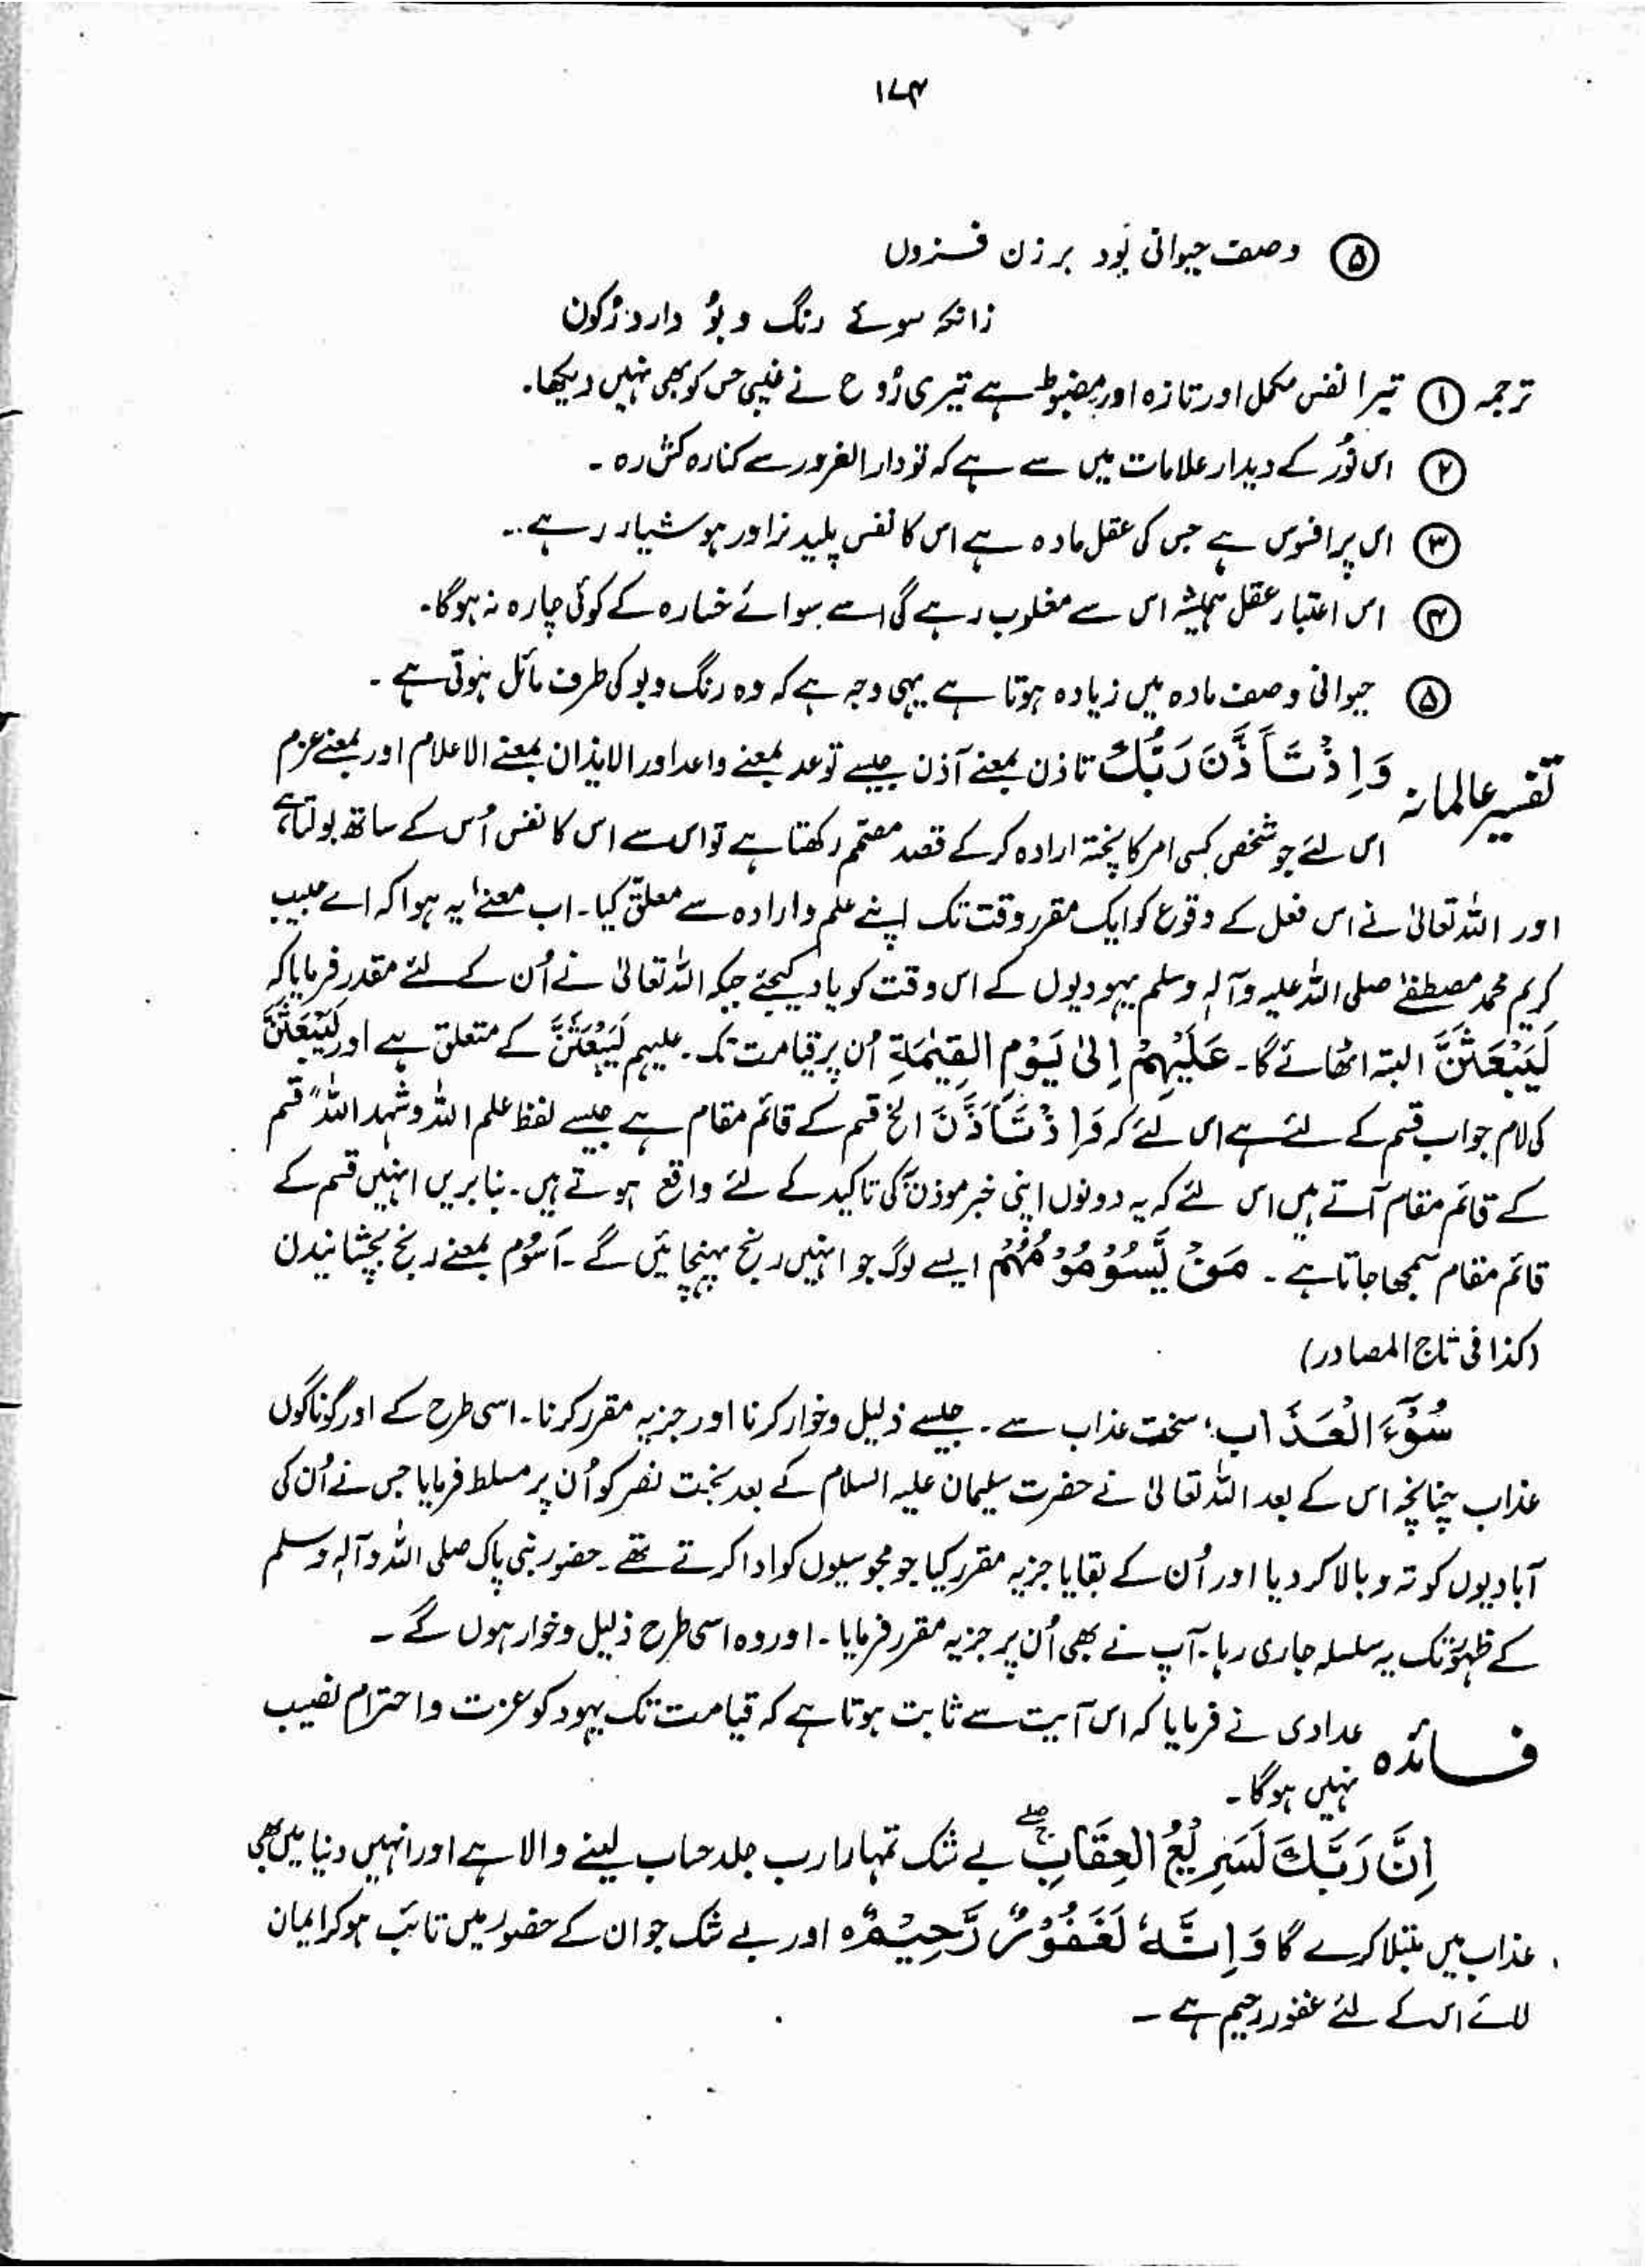 ۱۷۴
⑤ وصف حیوانی بَود برزن فــزوں
زانکہ سوئے رنگ و بُو دارد رُکون
ترجمہ ① تیرا نفس مکمل اور تازہ اور مضبوط ہے تیری رُوح نے غیبی حس کو بھی نہیں دیکھا۔
② اس نُور کے دیدار علامات میں سے ہے کہ تو دار الغرور سے کنارہ کش رہ ۔
③ اس پر افسوس ہے جس کی عقل مادہ ہے اس کا نفس پلید نر اور ہوشیار رہے ۔
④ اس اعتبار عقل ہمیشہ اس سے مغلوب رہے گی اسے سوائے خسارہ کے کوئی چارہ نہ ہوگا۔
⑤ حیوانی وصف مادہ میں زیادہ ہوتا ہے یہی وجہ ہے کہ وہ رنگ و بو کی طرف مائل ہوتی ہے ۔
تفسیر عالمانہ وَاِذْ تَاَذَّنَ رَبُّكَ تاذن بمعنے آذن جیسے توعد بمعنے واعد اور الایذان بمعنے الاعلام اور بمعنے عزم
اس لئے جو شخص کسی امر کا پختہ ارادہ کر کے قصد مصمّم رکھتا ہے تو اس سے اس کا نفس اُس کے ساتھ بولتا ہے
اور اللہ تعالیٰ نے اس فعل کے وقوع کو ایک مقرر وقت تک اپنے علم و ارادہ سے معلّق کیا۔ اب معنےٰ یہ ہوا کہ اے حبیب
کریم محمد مصطفےٰ صلی اللہ علیہ وآلہ وسلم یہودیوں کے اس وقت کو یاد کیجئے جبکہ اللہ تعالیٰ نے اُن کے لئے مقدر فرمایا کہ
لَیَبْعَثَنَّ البتہ اٹھائے گا۔ عَلَيْهِمْ اِلىٰ يَوْمِ الْقِيٰمَةِ اُن پر قیامت تک ۔ علیہم لَیَبْعَثَنَّ کے متعلق ہے اور لَیَبْعَثَنَّ
کی لام جواب قسم کے لئے ہے اس لئے کہ وَاِذْ تَاَذَّنَ الخ قسم کے قائم مقام ہے جیسے لفظ علم اللہ وشہد اللہ قسم
کے قائم مقام آتے ہیں اس لئے کہ یہ دونوں اپنی خبر موذن کی تاکید کے لئے واقع ہوتے ہیں۔ بنا بریں انہیں قسم کے
قائم مقام سمجھا جاتا ہے ۔ مَنْ يَّسُوْمُوْنُهُمْ ایسے لوگ جو انہیں رنج پہنچائیں گے ۔ اَسُوم بمعنے رنج بچشانیدن
(کذا فی تاج المصادر)
سُوْٓءَ الْعَذَابِ، سخت عذاب سے ۔ جیسے ذلیل وخوار کرنا اور جزیہ مقرر کرنا ۔ اسی طرح کے اور گوناگوں
عذاب چنانچہ اس کے بعد اللہ تعالیٰ نے حضرت سلیمان علیہ السلام کے بعد بخت نصر کو اُن پر مسلط فرمایا جس نے اُن کی
آبادیوں کو تہ و بالا کر دیا اور اُن کے بقایا جزیہ مقرر کیا جو مجوسیوں کو ادا کرتے تھے ۔ حضور نبی پاک صلی اللہ وآلہ وسلم
کے ظہور تک یہ سلسلہ جاری رہا ۔ آپ نے بھی اُن پر جزیہ مقرر فرمایا ۔ اور وہ اسی طرح ذلیل وخوار ہوں گے ۔
فــائدہ عدادی نے فرمایا کہ اس آیت سے ثابت ہوتا ہے کہ قیامت تک یہود کو عزت و احترام نصیب
نہیں ہوگا ۔
اِنَّ رَبَّكَ لَسَرِيْعُ الْعِقَابِ ۖۚ بے شک تمہارا رب جلد حساب لینے والا ہے اور انہیں دنیا میں بھی
عذاب میں مبتلا کرے گا وَاِنَّهٗ لَغَفُوْرٌ رَّحِيْمٌ ہ اور بے شک جو ان کے حضور میں تائب ہو کر ایمان
لائے اس کے لئے غفور رحیم ہے ۔